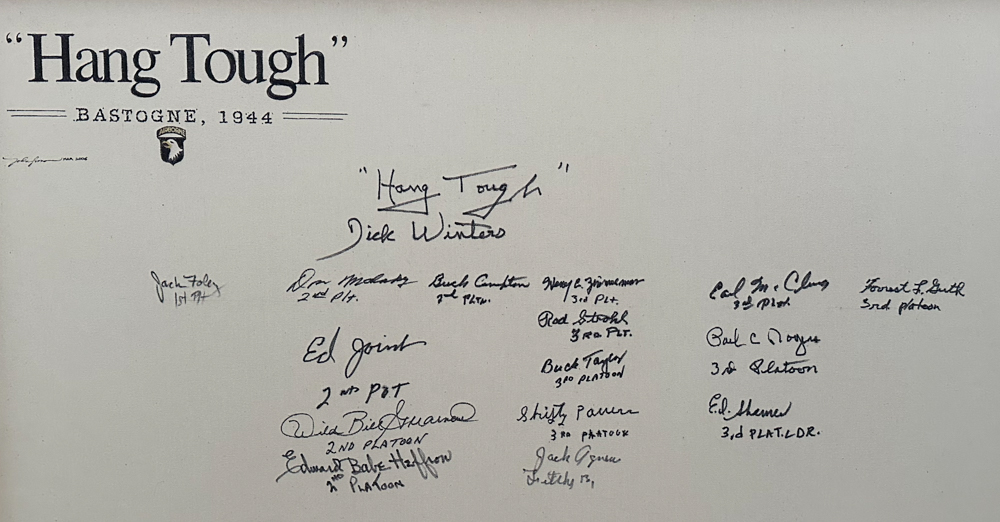 “Hang Tough”
BASTOGNE, 1944
AIRBORNE
"Hang Tough"
Dick Winters
Jack Foley
1st Plt
Don Malarky
2nd Plt.
Buck Compton
2nd Pltn.
Henry C. Zimmerman
3rd Plt.
Rod Strohl
3RD PLT.
Buck Taylor
3RD PLATOON
Shifty Powers
3RD PLATOON
Jack Agnew
Earl McClung
3rd Plat
Paul C Rogers
3rd Platoon
Ed. Shames
3rd PLAT. LDR.
Forrest L. Guth
3rd platoon
Ed Joint
2nd PLT
Wild Bill Guarnere
2ND PLATOON
Edward Babe Heffron
2ND PLATOON